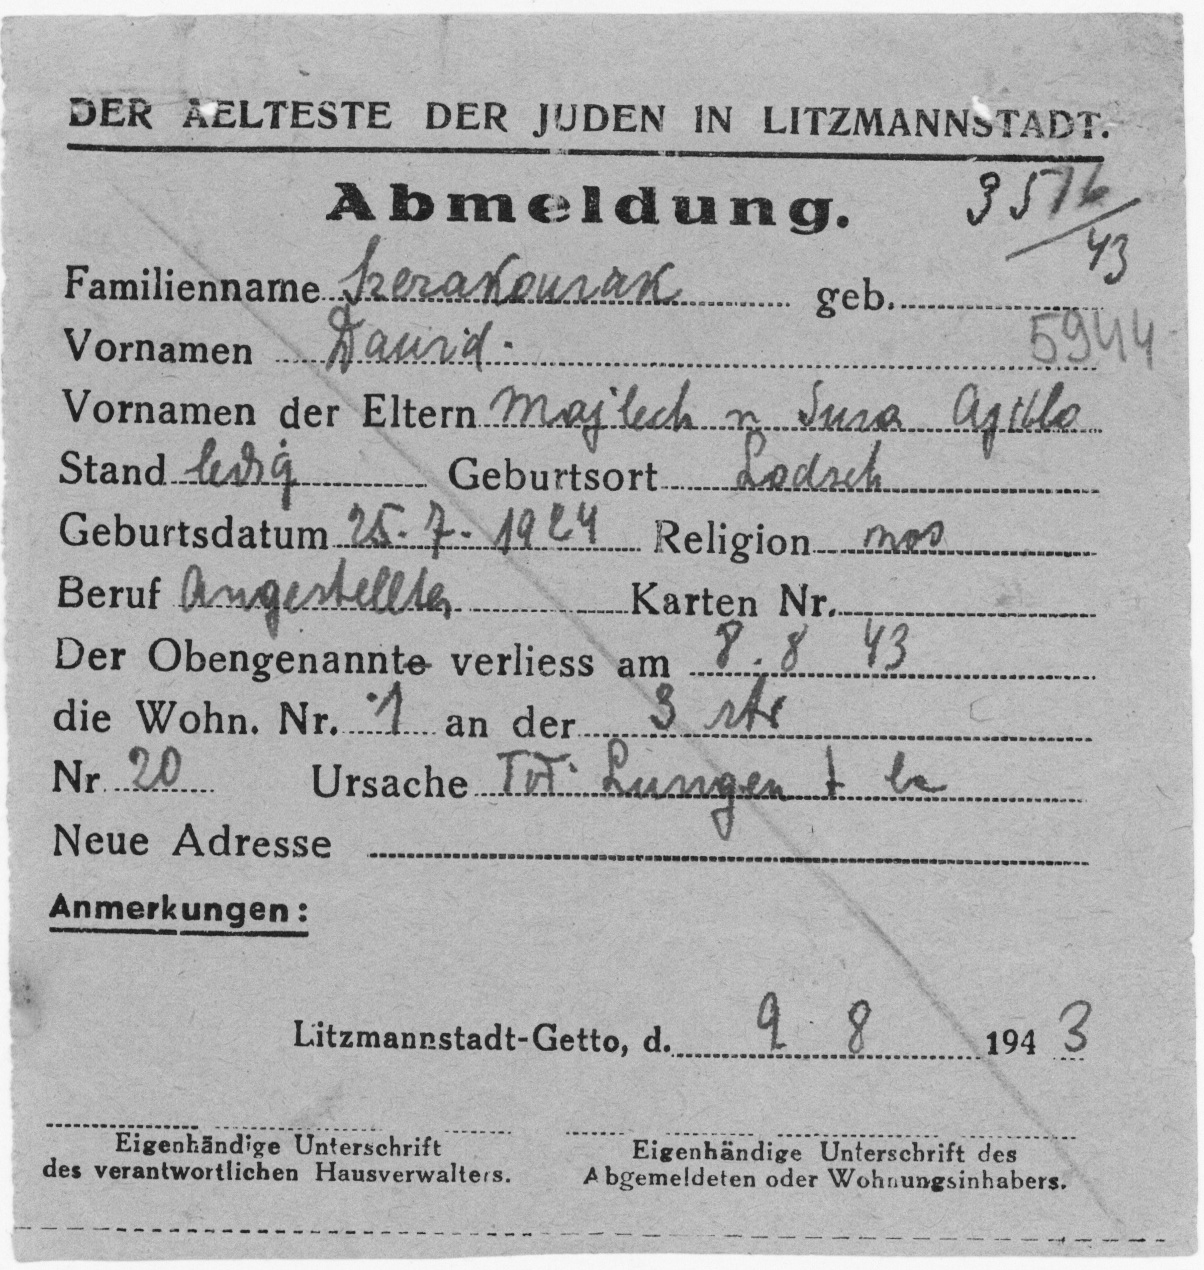 DER AELTESTE DER JUDEN IN LITZMANNSTADT.
Abmeldung. 3576/43
Familienname Szerakowiak geb.
Vornamen Dawid. 5944
Vornamen der Eltern Majlech n Sura
Stand ledig Geburtsort Lodsch
Geburtsdatum 25.7.1924 Religion mos
Beruf Angestellter Karten Nr.
Der Obengenannte verliess am 8.8 43
die Wohn. Nr. 1 an der 3 str
Nr 20 Ursache Tot Lungen
Neue Adresse
Anmerkungen:
Litzmannstadt-Getto, d. 9 8 1943
Eigenhändige Unterschrift
des verantwortlichen Hausverwalters.
Eigenhändige Unterschrift des
Abgemeldeten oder Wohnungsinhabers.